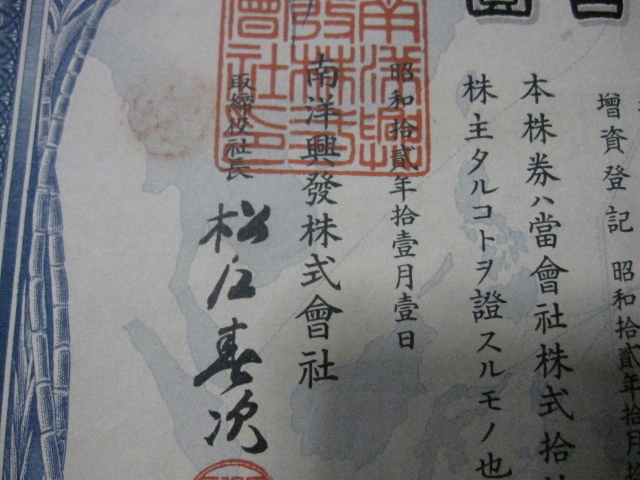 增資登記 昭和拾貳年拾月
本株券ハ當會社株式拾
株主タルコトヲ證スルモノ也
昭和拾貳年拾壹月壹日
南洋興發株式會社
取締役社長
松江春次